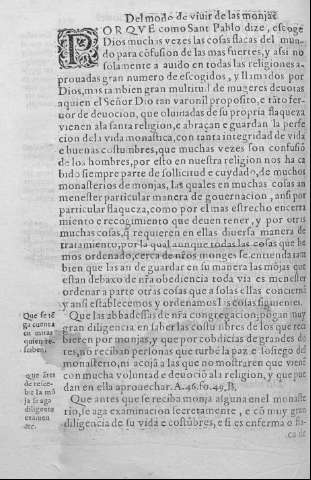 Del modo de viuir de las monjas
PORQVE como Sant Pablo dize, escoge
Dios muchas vezes las cosas flacas del mun-
do para cõfusion de las mas fuertes, y assi no
solamente a auido en todas las religiones a-
prouadas gran numero de escogidos, y llamados por
Dios, mas tambien gran multitud de mugeres deuotas
a quien el Señor Dio tan varonil proposito, e tãto fer-
uor de deuocion, que oluidadas de su propria flaqueza
vienen a la santa religion, e abraçan e guardan la perfe
cion de la vida monastica, con tanta integridad de vida
e buenas costumbres, que muchas vezes son confusiõ
de los hombres, por esto en nuestra religion nos ha ca
bido siempre parte de sollicitud e cuydado, de muchos
monasterios de monjas, Las quales en muchas cosas an
menester particular manera de gouernacion, ansi por
particular flaqueza, como por el mas estrecho encerra
miento e recogimiento que deuen tener, y por otras
muchas cosas, q̃ requieren en ellas diuersa manera de
tratamiento, por la qual aunque todas las cosas que he
mos ordenado, cerca de nr̃os monges se entienda tam
bien que las an de guardar en su manera las mõjas que
estan debaxo de nr̃a obediencia toda via es menester
ordenar a parte otras cosas que a solas ellas conciernẽ
y ansi establecemos y ordenamos las cosas siguientes.
Que las abbadessas de nr̃a congregacion, põgan muy
gran diligencia en saber las costũbres de los que reci
bieren por monjas, y que por cobdicias de grandes do
tes, no reciban personas que turbẽ la paz e sosiego del
monasterio, ni acojã a las que no mostraren que vienẽ
con mucha voluntad e deuociõ a la religion, y que pue
dan en ella aprouechar. A. 46. fo. 49. B.
Que antes que se reciba monja alguna en el monaste
rio, se aga examinacion secretamente, e cõ muy gran
diligencia de su vida e costũbres, e si es enferma o ha-
ca de
Que se tẽ
ga cuenta
en mirar
quien re-
ciben.
Que ãtes
de rece-
bir la mõ
ja se aga
diligente
examen
etc.